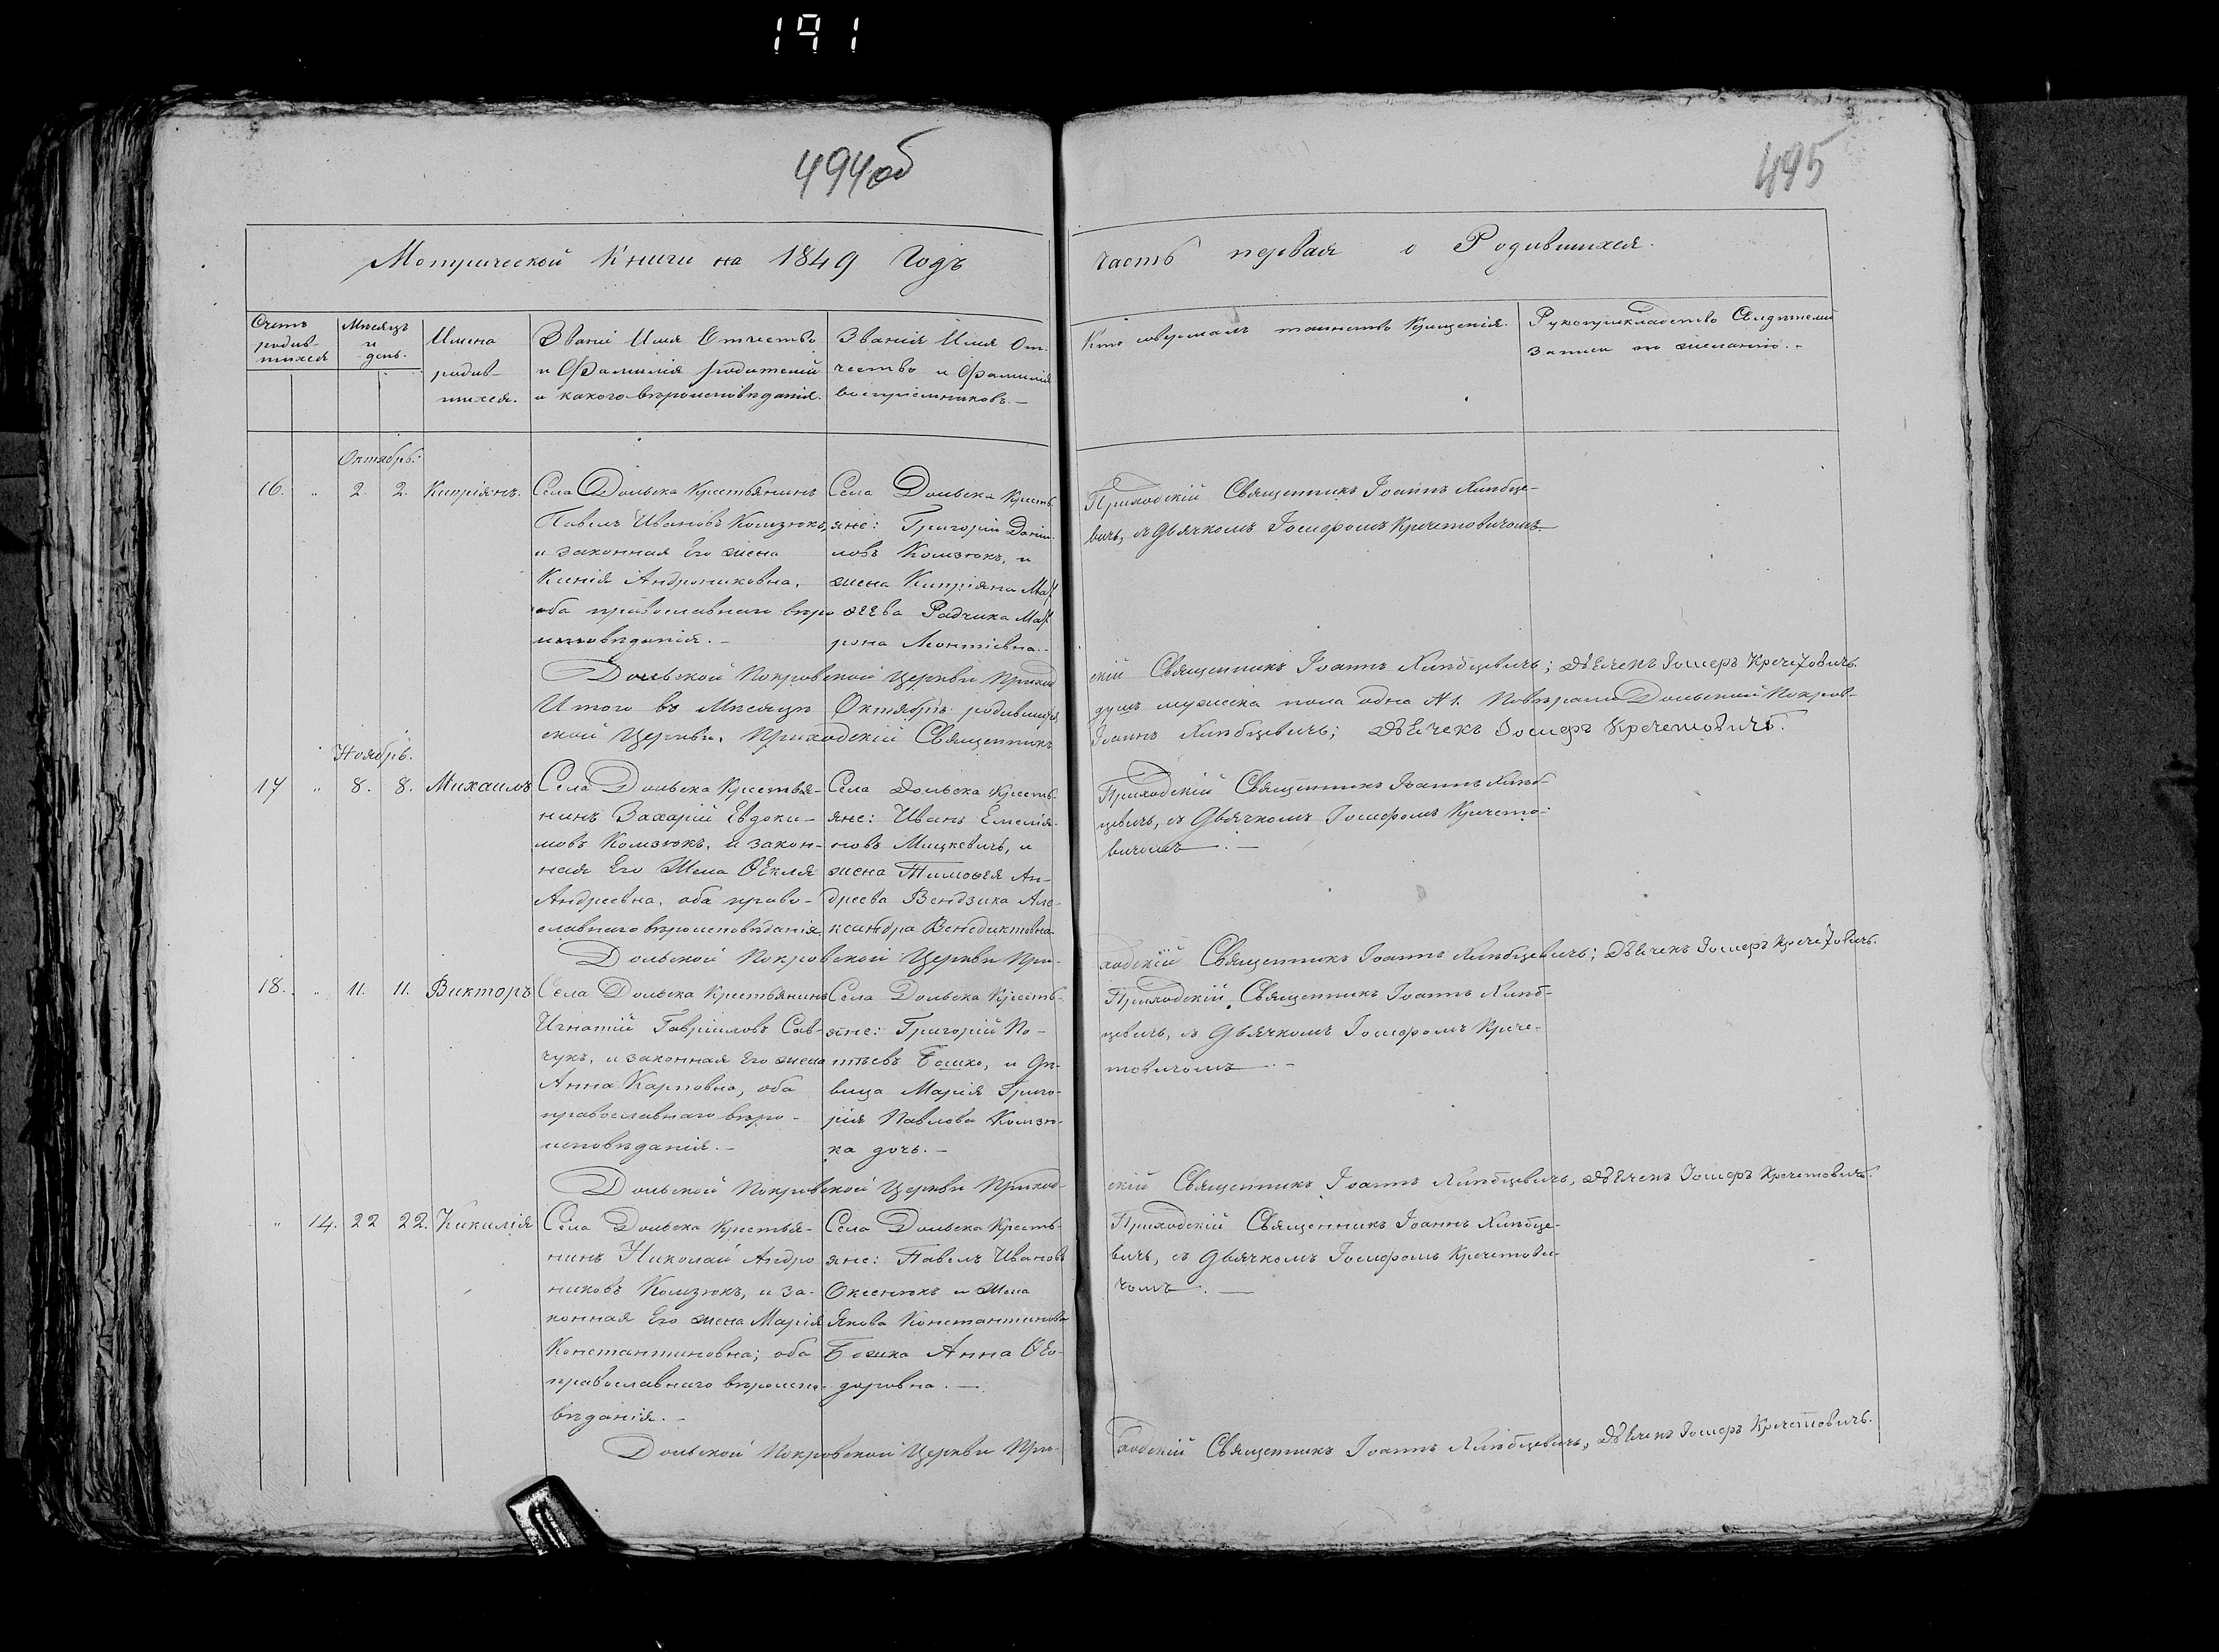 191
494об
495
Метрической Книги на 1849 Годъ
часть первая о Родившихся.
Счетъ родив-шихся
Мѣсяцъ и день.
Имена родив-шихся.
Званіе Имя Отчество
и Фамилія родителей
и какого вѣроисповѣданія.
Званія Имя От-
чество и Фамилія
воспріемниковъ.-
Кто совершалъ таинство Крещенія.
Рукоприкладство Свидѣтелей
записи по желанію.-
Октябрь:
16. " 2. 2. Кипріянъ.
Села Дольска Крестьянинъ
Павелъ Ивановъ Комзюкъ,
и законная Его жена
Ксенія Андрониковна,
оба православнаго вѣро
исповѣданія.-
Села Дольска Кресть
яне: Григорій Дани
ловъ Комзюкъ, и
жена Кипріяна Мат
ѳеева Радчика Мат
рона Леонтіевна.-
Приходскій Священникъ Іоаннъ Хлѣбце-
вичъ, съ дьячкомъ Іосифомъ Кречетовичомъ
Дольской Покровской Церкви Приход
скій Священникъ Іоаннъ Хлѣбцевичъ; Дьячекъ Іосифъ Кречетовичъ.
Итого въ Мѣсяцѣ Октябрѣ родившихся
душъ мужеска пола одна № 1. Дольской Покров-
ской Церкви, Приходскій Священникъ
Іоаннъ Хлѣбцевичъ; Дьячекъ Іосифъ Кречетовичъ.
Ноябрь.
17 " 8. 8. Михаилъ
Села Дольска Крестья-
нинъ Захарій Евдоки-
мовъ Комзюкъ, и закон-
ная Его Жена Ѳекля
Андреевна, оба право-
славнаго вѣроисповѣданія
Села Дольска Кресть-
яне: Иванъ Емелія-
новъ Мицкевичъ, и
жена Тимоѳея Ан-
дреева Вендзика Але-
ксандра Венедиктовна
Приходскій Священникъ Іоаннъ Хлѣб-
цевичъ, съ дьячкомъ Іосифомъ Кречето-
вичомъ.-
Дольской Покровской Церкви При-
ходскій Священникъ Іоаннъ Хлѣбцевичъ; Дьячекъ Іосифъ Кречетовичъ.
18. " 11. 11. Викторъ
Села Дольска Крестьянинъ
Игнатій Гавріиловъ Сав-
чукъ, и законная Его жена
Анна Карповна, оба
православнаго вѣро-
исповѣданія.-
Села Дольска Кресть-
яне: Григорій По-
тѣевъ Бошко, и дѣ-
вица Марія Григо-
рія Павлова Комзю-
ка дочь.-
Приходскій Священникъ Іоаннъ Хлѣб-
цевичъ, съ дьячкомъ Іосифомъ Крече-
товичомъ.-
Дольской Покровской Церкви Приход-
скій Священникъ Іоаннъ Хлѣбцевичъ, Дьячекъ Іосифъ Кречетовичъ.
" 14. 22 22. Кикилія
Села Дольска Крестья-
нинъ Николай Андро
никовъ Комзюкъ, и за-
конная Его жена Марія
Константиновна; оба
православнаго вѣроиспо-
вѣданія.-
Села Дольска Кресть-
яне: Павелъ Ивановъ
Оксенюкъ и Жена
Якова Константинова
Бошка Анна Ѳео-
доровна.-
Приходскій Священникъ Іоаннъ Хлѣбце-
вичъ, съ дьячкомъ Іосифомъ Кречетови-
чомъ.-
Дольской Покровской Церкви При-
ходскій Священникъ Іоаннъ Хлѣбцевичъ, Дьячекъ Іосифъ Кречетовичъ.